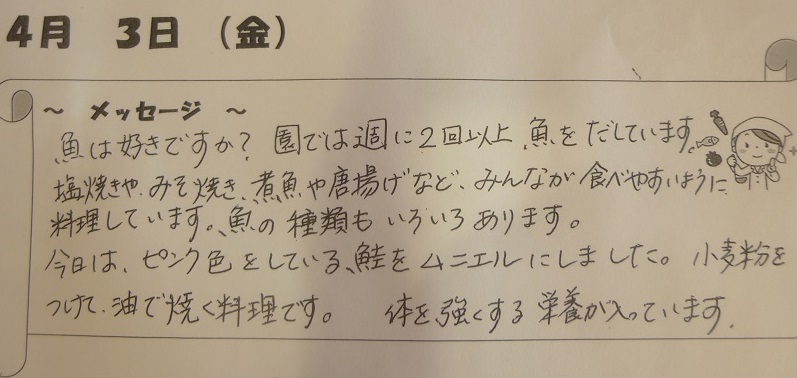 4月 3日 (金)
~ メッセージ ~
魚は好きですか? 園では週に2回以上、魚をだしています。
塩焼きや、みそ焼き、煮魚や唐揚げなど、みんなが食べやすいように
料理しています。魚の種類もいろいろあります。
今日は、ピンク色をしている、鮭をムニエルにしました。小麦粉を
つけて、油で焼く料理です。 体を強くする栄養が入っています。